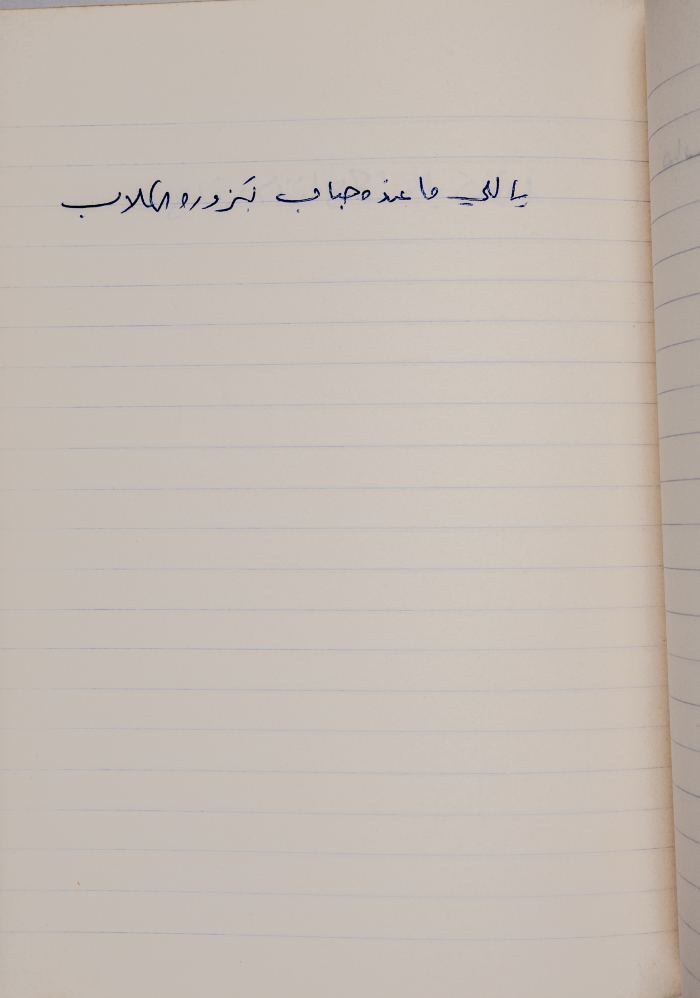 يا للي ما عنده حباب بتزوره الكلاب